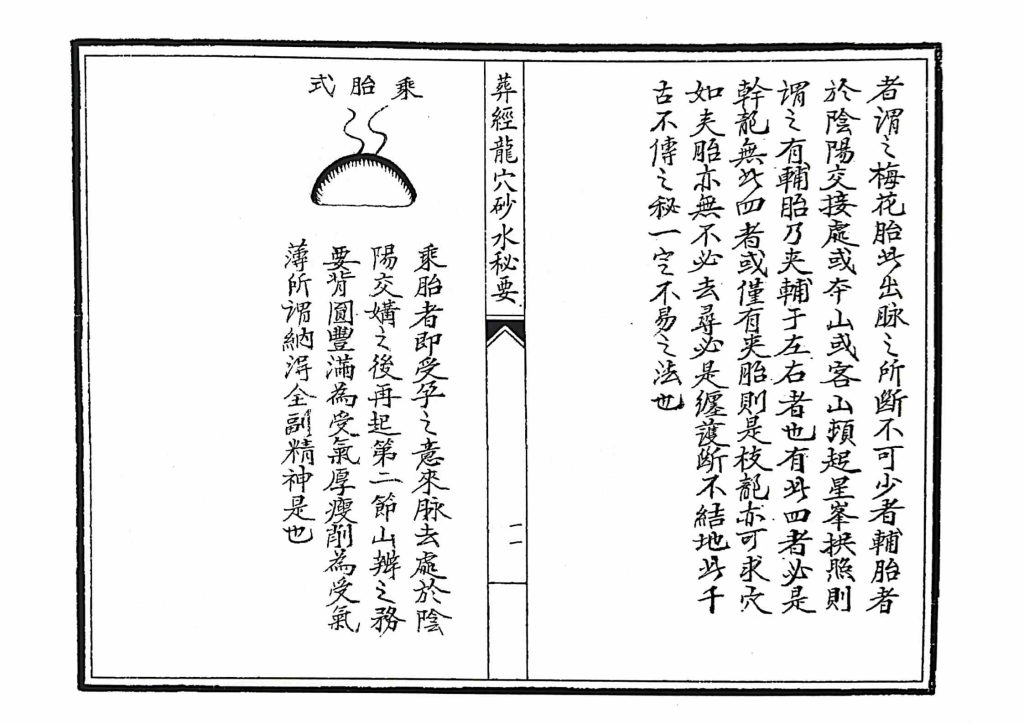 者謂之梅花胎此出脉之所斷不可少者輔胎者
於陰陽交接處或本山或客山頓起星峯拱照則
謂之有輔胎乃夾輔于左右者也有此四者必是
幹龍無此四者或僅有夾胎則是枝龍亦可求穴
如夾胎亦無不必去尋必是纏護斷不結地此千
古不傳之秘一定不易之法也
葬經龍穴砂水秘要
一一
乘胎式
乘胎者即受孕之意來脉去處於陰
陽交媾之後再起第二節山辨之務
要背圓豐滿為受氣厚瘦削為受氣
薄所謂納淂全副精神是也